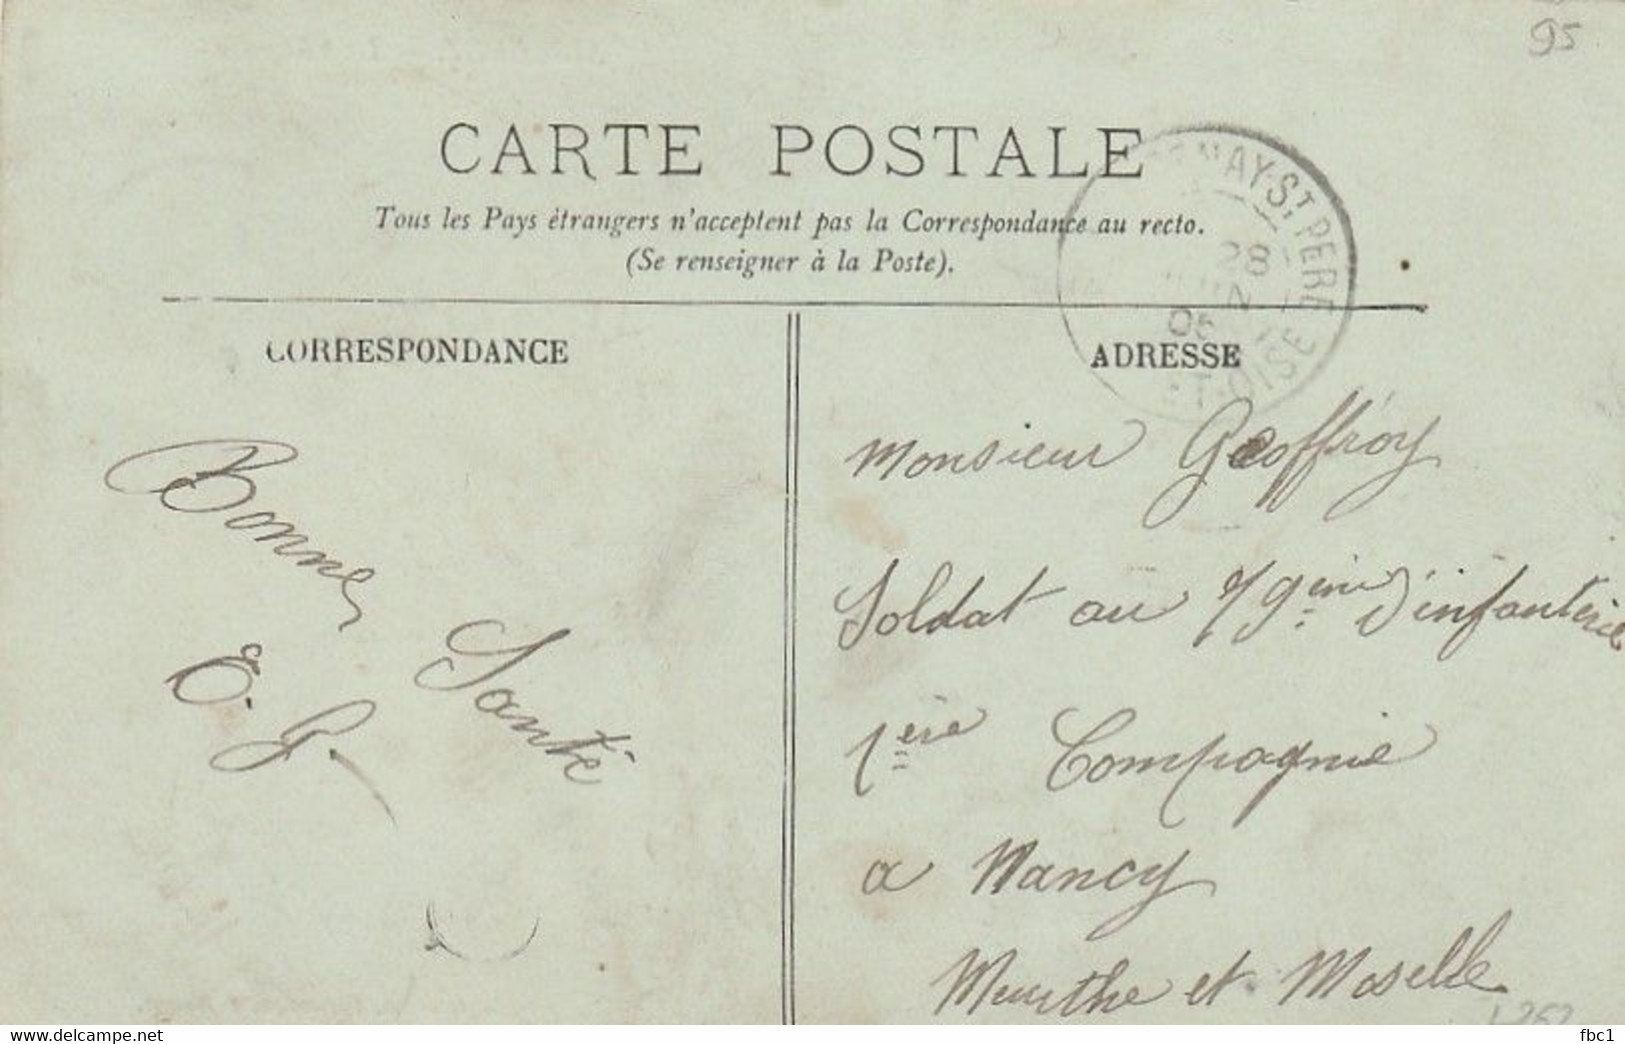 95
CARTE POSTALE
Tous les Pays étrangers n'acceptent pas la Correspondance au recto.
(Se renseigner à la Poste).
NAY-ST PERE
28
05
ET-OISE
CORRESPONDANCE
Bonne
Santé
E. G.
ADRESSE
Monsieur Geoffroy
Soldat au 79ème d'infanterie
1ère Compagnie
a Nancy
Meurthe et Moselle
fbc1